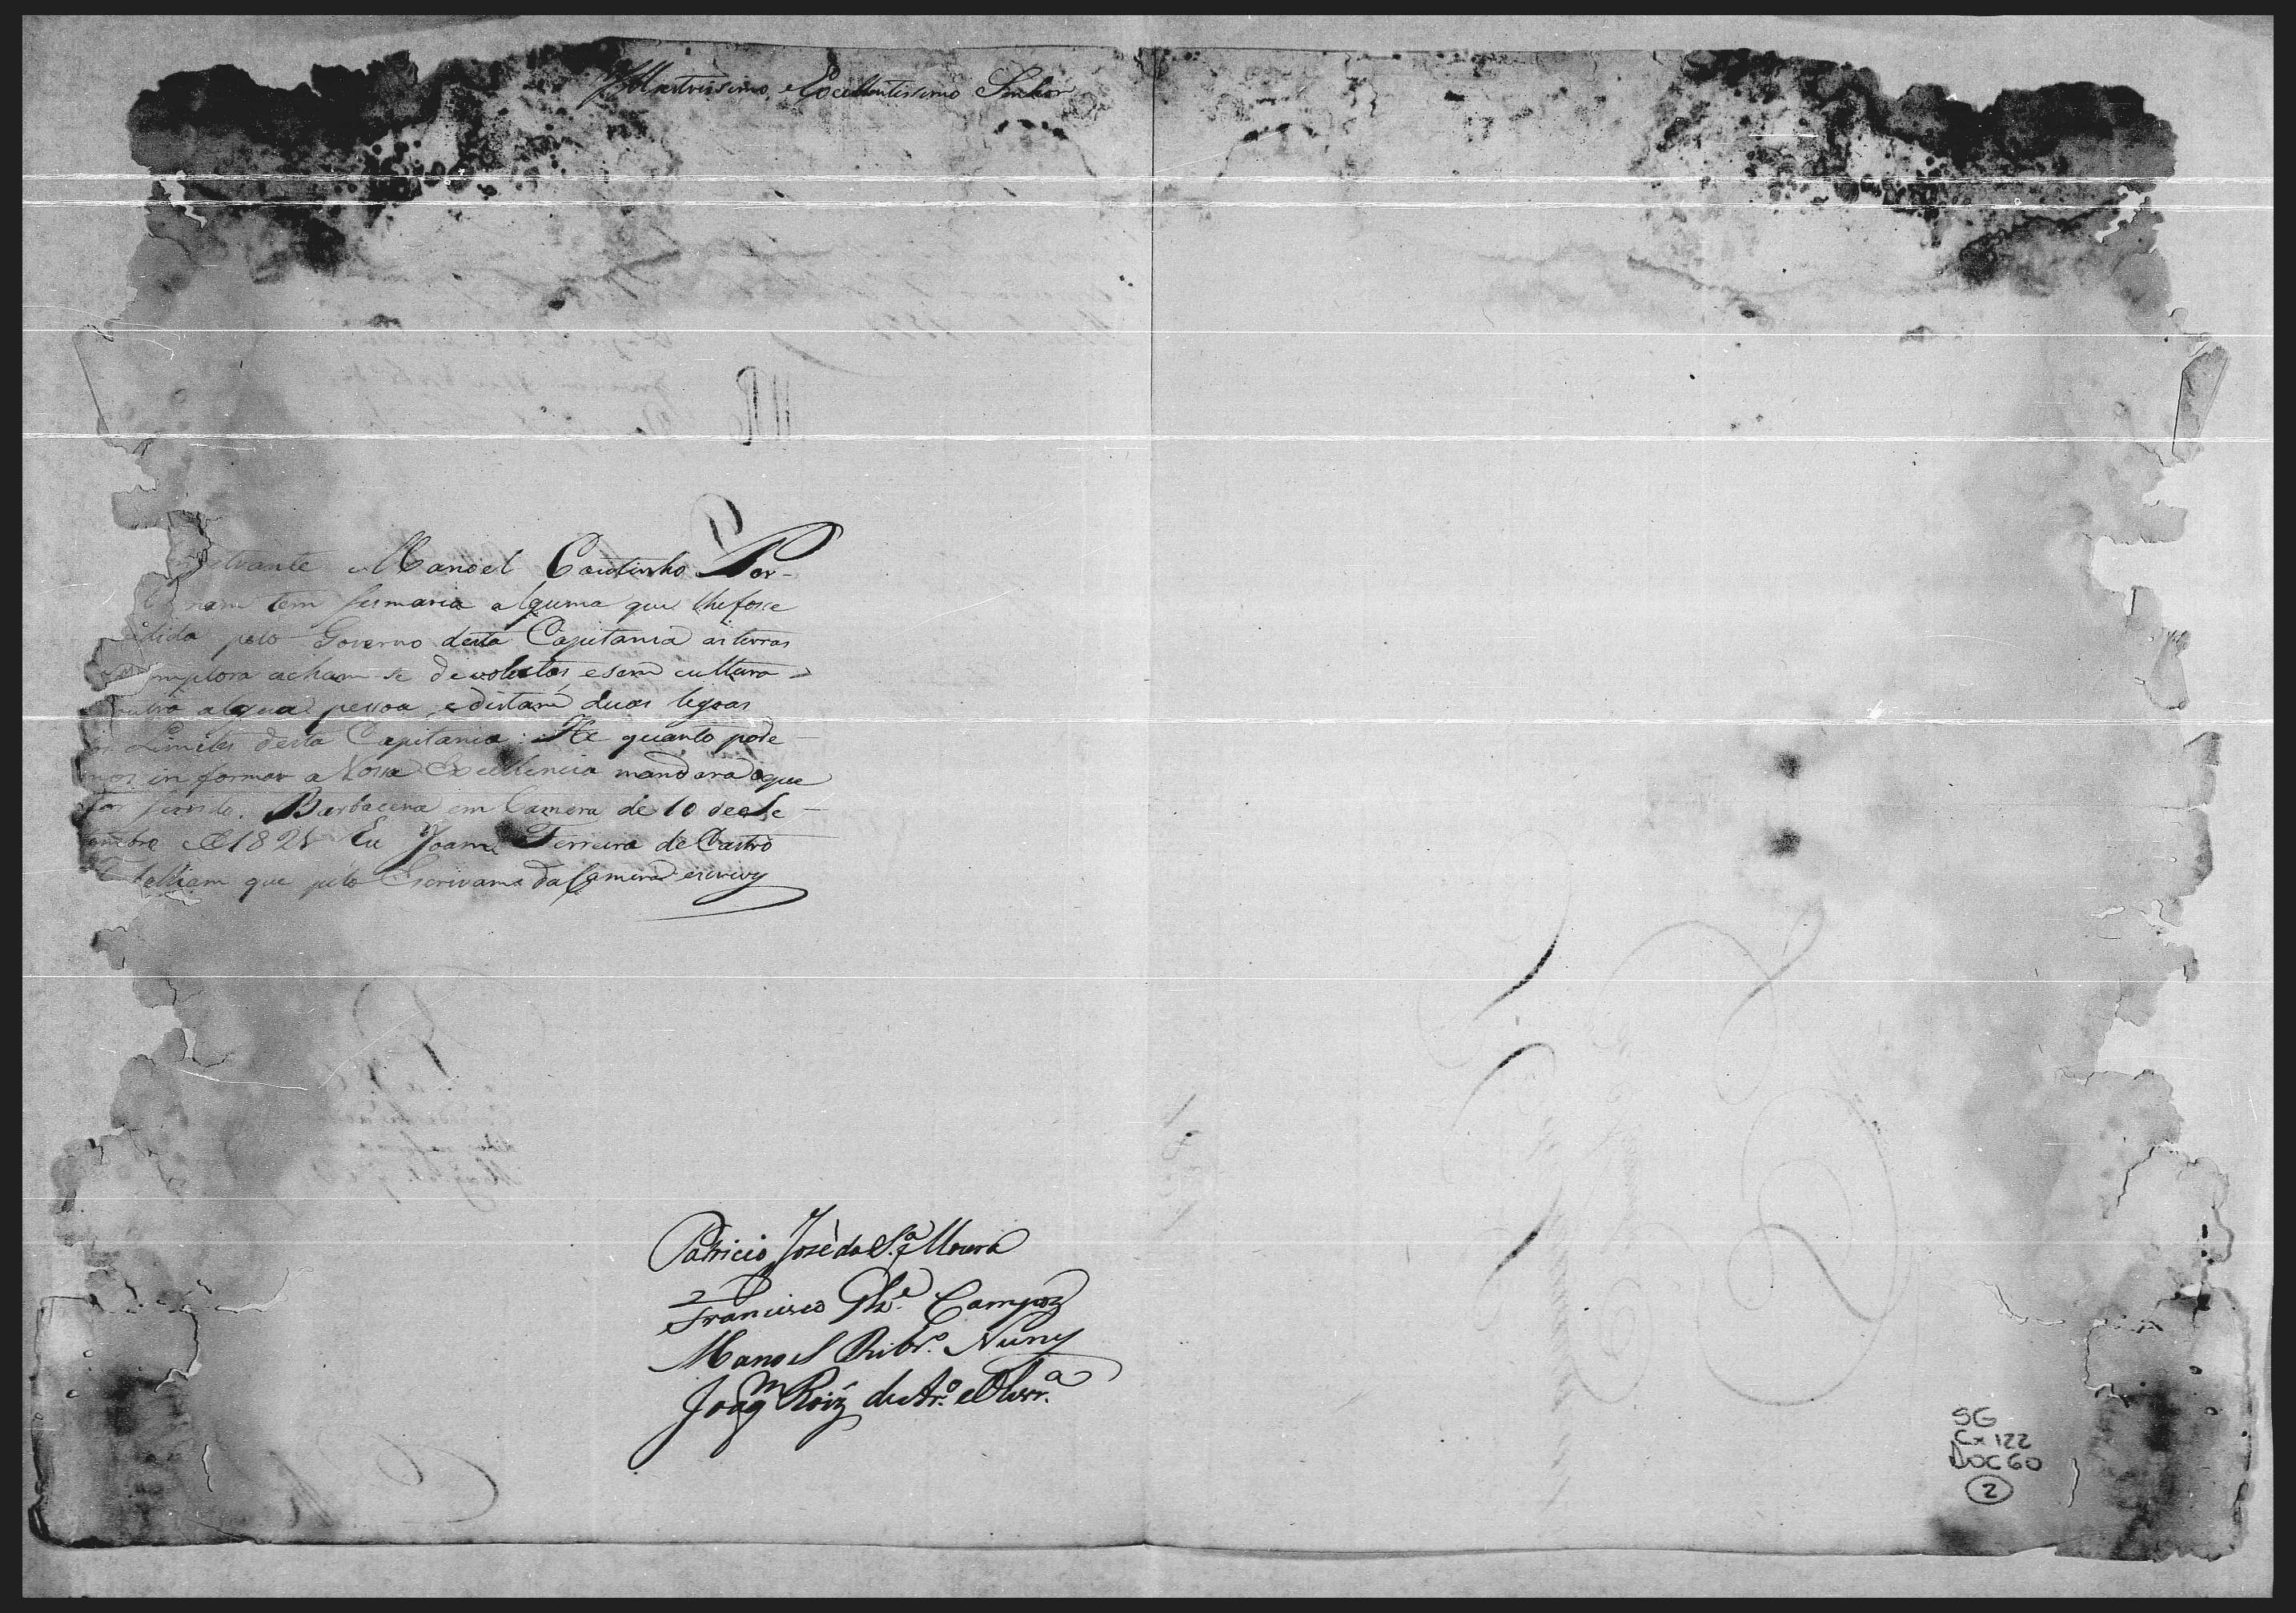 Illustrissimo e Excellentissimo Senhor
petrante Manoel Coutinho Por-
nam tem sesmaria alguma que lhe fosse
edida pelo Governo desta Capitania as terras
implora acham se devolutas, e sem cultura
algua pessoa, e distam duas legoas
Limites desta Capitania: He quanto pode-
mos informar a Vossa Excellencia mandara o que
for servido. Barbacena em Camera de 10 de Se-
tembro de 1821 Eu Joam Ferreira de Castro
Tabelliam que pelo Escrivam da Camera escrevy
Patricio José da S.ª Moura
Francisco Campoz
Manoel Ribr.º Nunes
Joaqm Roiz de Ar.º e Olivr.ª
SG
Cx 122
DOC 60
2